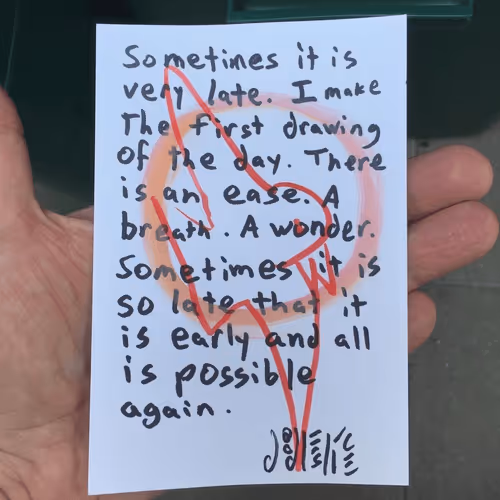 Sometimes it is
very late. I make
The first drawing
of the day. There
is an ease. A
breath. A wonder.
Sometimes it is
so late that it
is early and all
is possible
again.